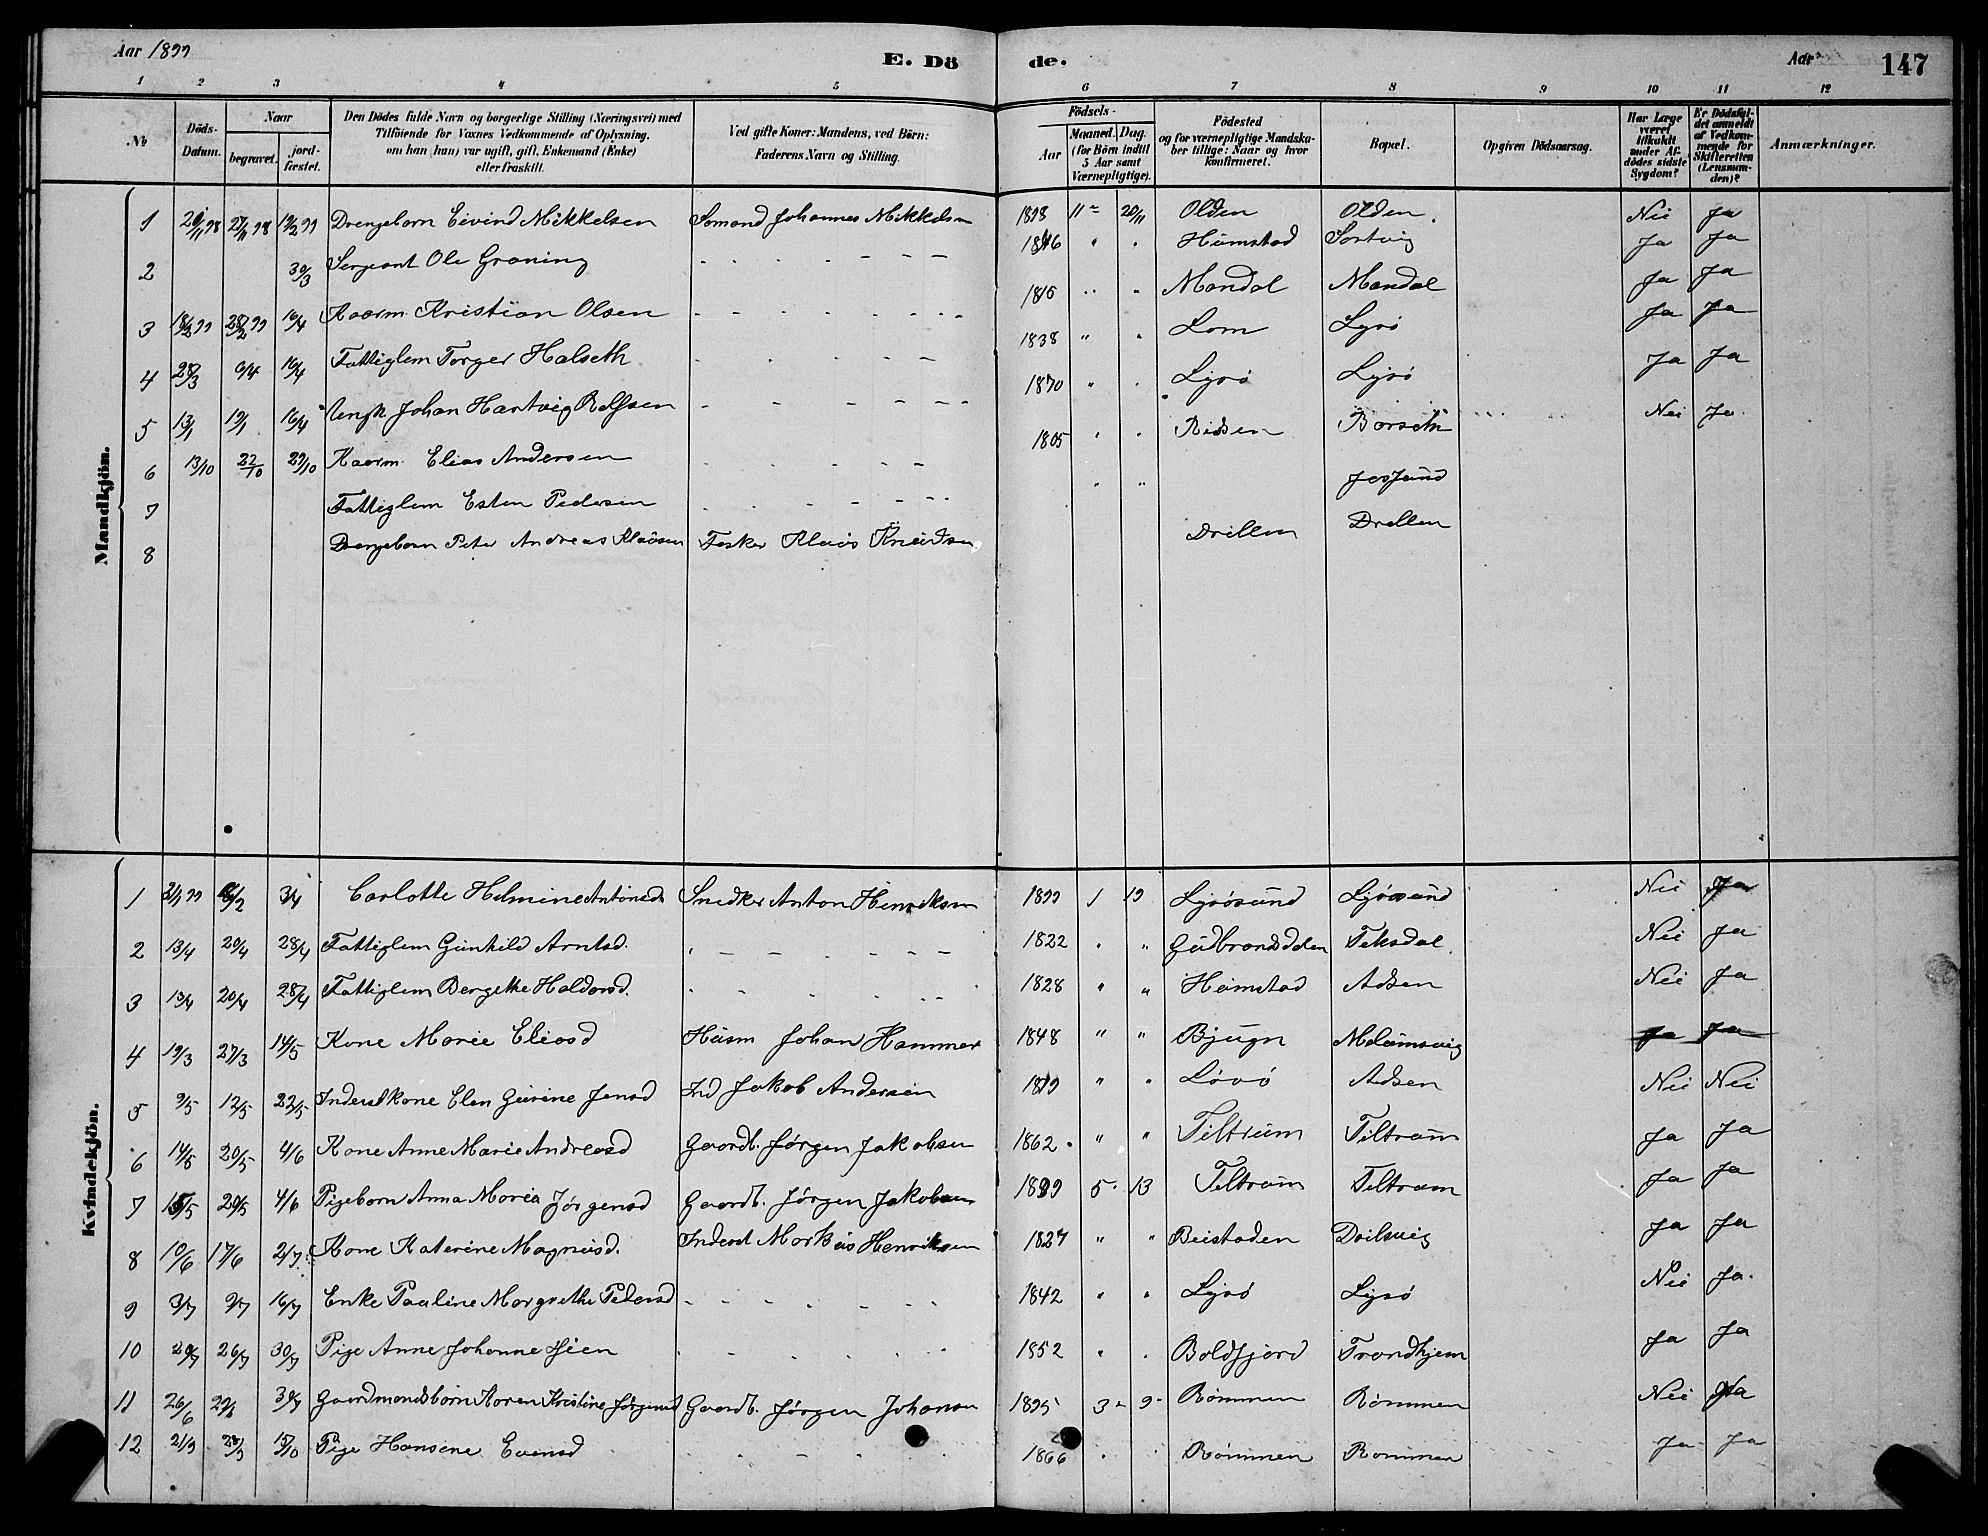 Aar 1899
E. Dö
de.
Aar
147
1 2 3 4 5 6 7 8 9 10 11 12
No
Döds-Datum.
Naar
begravet.
jord-fæstet.
Den Dödes fulde Navn og borgerlige Stilling (Næringsvei) med
Tilföiende for Voxnes Vedkommende af Oplysning,
om han (hun) var ugift, gift, Enkemand (Enke)
eller fraskilt.
Ved gifte Koner: Mandens, ved Börn:
Faderens Navn og Stilling.
Födsels-
Aar
Maaned. Dag.
(for Börn indtil
5 Aar samt
Værnepligtige).
Födested
og for værnepligtige Mandska-
ber tillige: Naar og hvor
konfirmeret.
Bopæl.
Opgiven Dödsaarsag.
Har Læge
været
tilkaldt
under Af-
dödes sidste
Sygdom?
Er Dödsfal-
det anmeldt
af Vedkom-
mende for
Skifteretten
(Lensman-
den)?
Anmærkninger.
Mandkjön.
1 27/11 98 12/2 99 Drengebarn Eivind Mikkelsen Sømand Johannes Mikkelsen 1898 11 20/11 Olden Olden. Nei Ja
2 30/3 Sergeant Ole Graning 1846 " " Hamstad Sartvig Ja Ja
3 18/2 99 28/2 99 16/4 Kaarm. Kristian Olsen " " Mandal Mandal Ja Ja
4 28/3 9/4 16/4 Fattiglem Torger Halseth 1838 " " Lom Lysø Ja Ja
5 13/1 19/1 16/4 Ungk Johan Hartvig Rolfsen 1870 " " Lysø Lysø Ja Ja
6 13/10 22/10 29/10 Kaarm. Elias Andersen 1805 " " Rissen Borseth Nei Ja
7 Fattiglem Esten Pedersen " " Jøssund
8 Drengebarn Peter Andreas Klausen Fisker Klaus Knudsen Drillen Drellen
Kvindekjön.
1 31/1 99 3/4 Carlotte Helmine Antonsd Snedker Anton Henriksen 1899 1 19 Lysøsund Lysøsund Nei Ja
2 13/4 20/4 28/4 Fattiglem Gunhild Arntsd. 1822 " " Gudbrandsdalen Teksdal Nei Ja
3 13/4 20/4 28/4 Fattiglem Bergethe Haldorsd. 1828 " " Hamstad Adsen Nei Ja
4 19/3 27/3 14/5 Kone Marie Eliasd Husm Johan Hammer 1848 " " Bjugn Melumsvig Ja Ja
5 9/5 12/5 22/5 Inderstkone Elen Gurine Jensd Ind Jakob Andersen 1819 " " Løvø Adsen Nei Nei
6 14/5 20/5 4/6 Kone Anne Marie Andreasd Gaardb. Jørgen Jakobsen 1862 " " Tiltrum Tiltrum Ja Ja
7 15/5 20/5 4/6 Pigebarn Anna Maria Jørgensd Gaardb. Jørgen Jakobsen 1899 5 13 Tiltrum Tiltrum Ja Ja
8 10/6 17/6 2/7 Kone Katerine Magnusd. Inderst Markus Henriksen 1827 " " Beistaden Doilsvig Ja Ja
9 3/7 9/7 16/7 Enke Pauline Margrethe Pedersd 1842 " " Lysø Lysø Nei Ja.
10 20/7 26/7 30/7 Pige Anne Johanne Hein 1852 " " Boldfjord Trondhjem Ja Ja
11 26/6 29/6 30/7 Gaardmandsbarn Karen Kristine Jørgensd Gaardb. Jørgen Johansen 1895 3 9 Rømmen Rømmen Nei Ja
12 21/9 28/9 15/10 Pige Hansine Evensd 1866 " Rømmen Rømmen Ja Ja